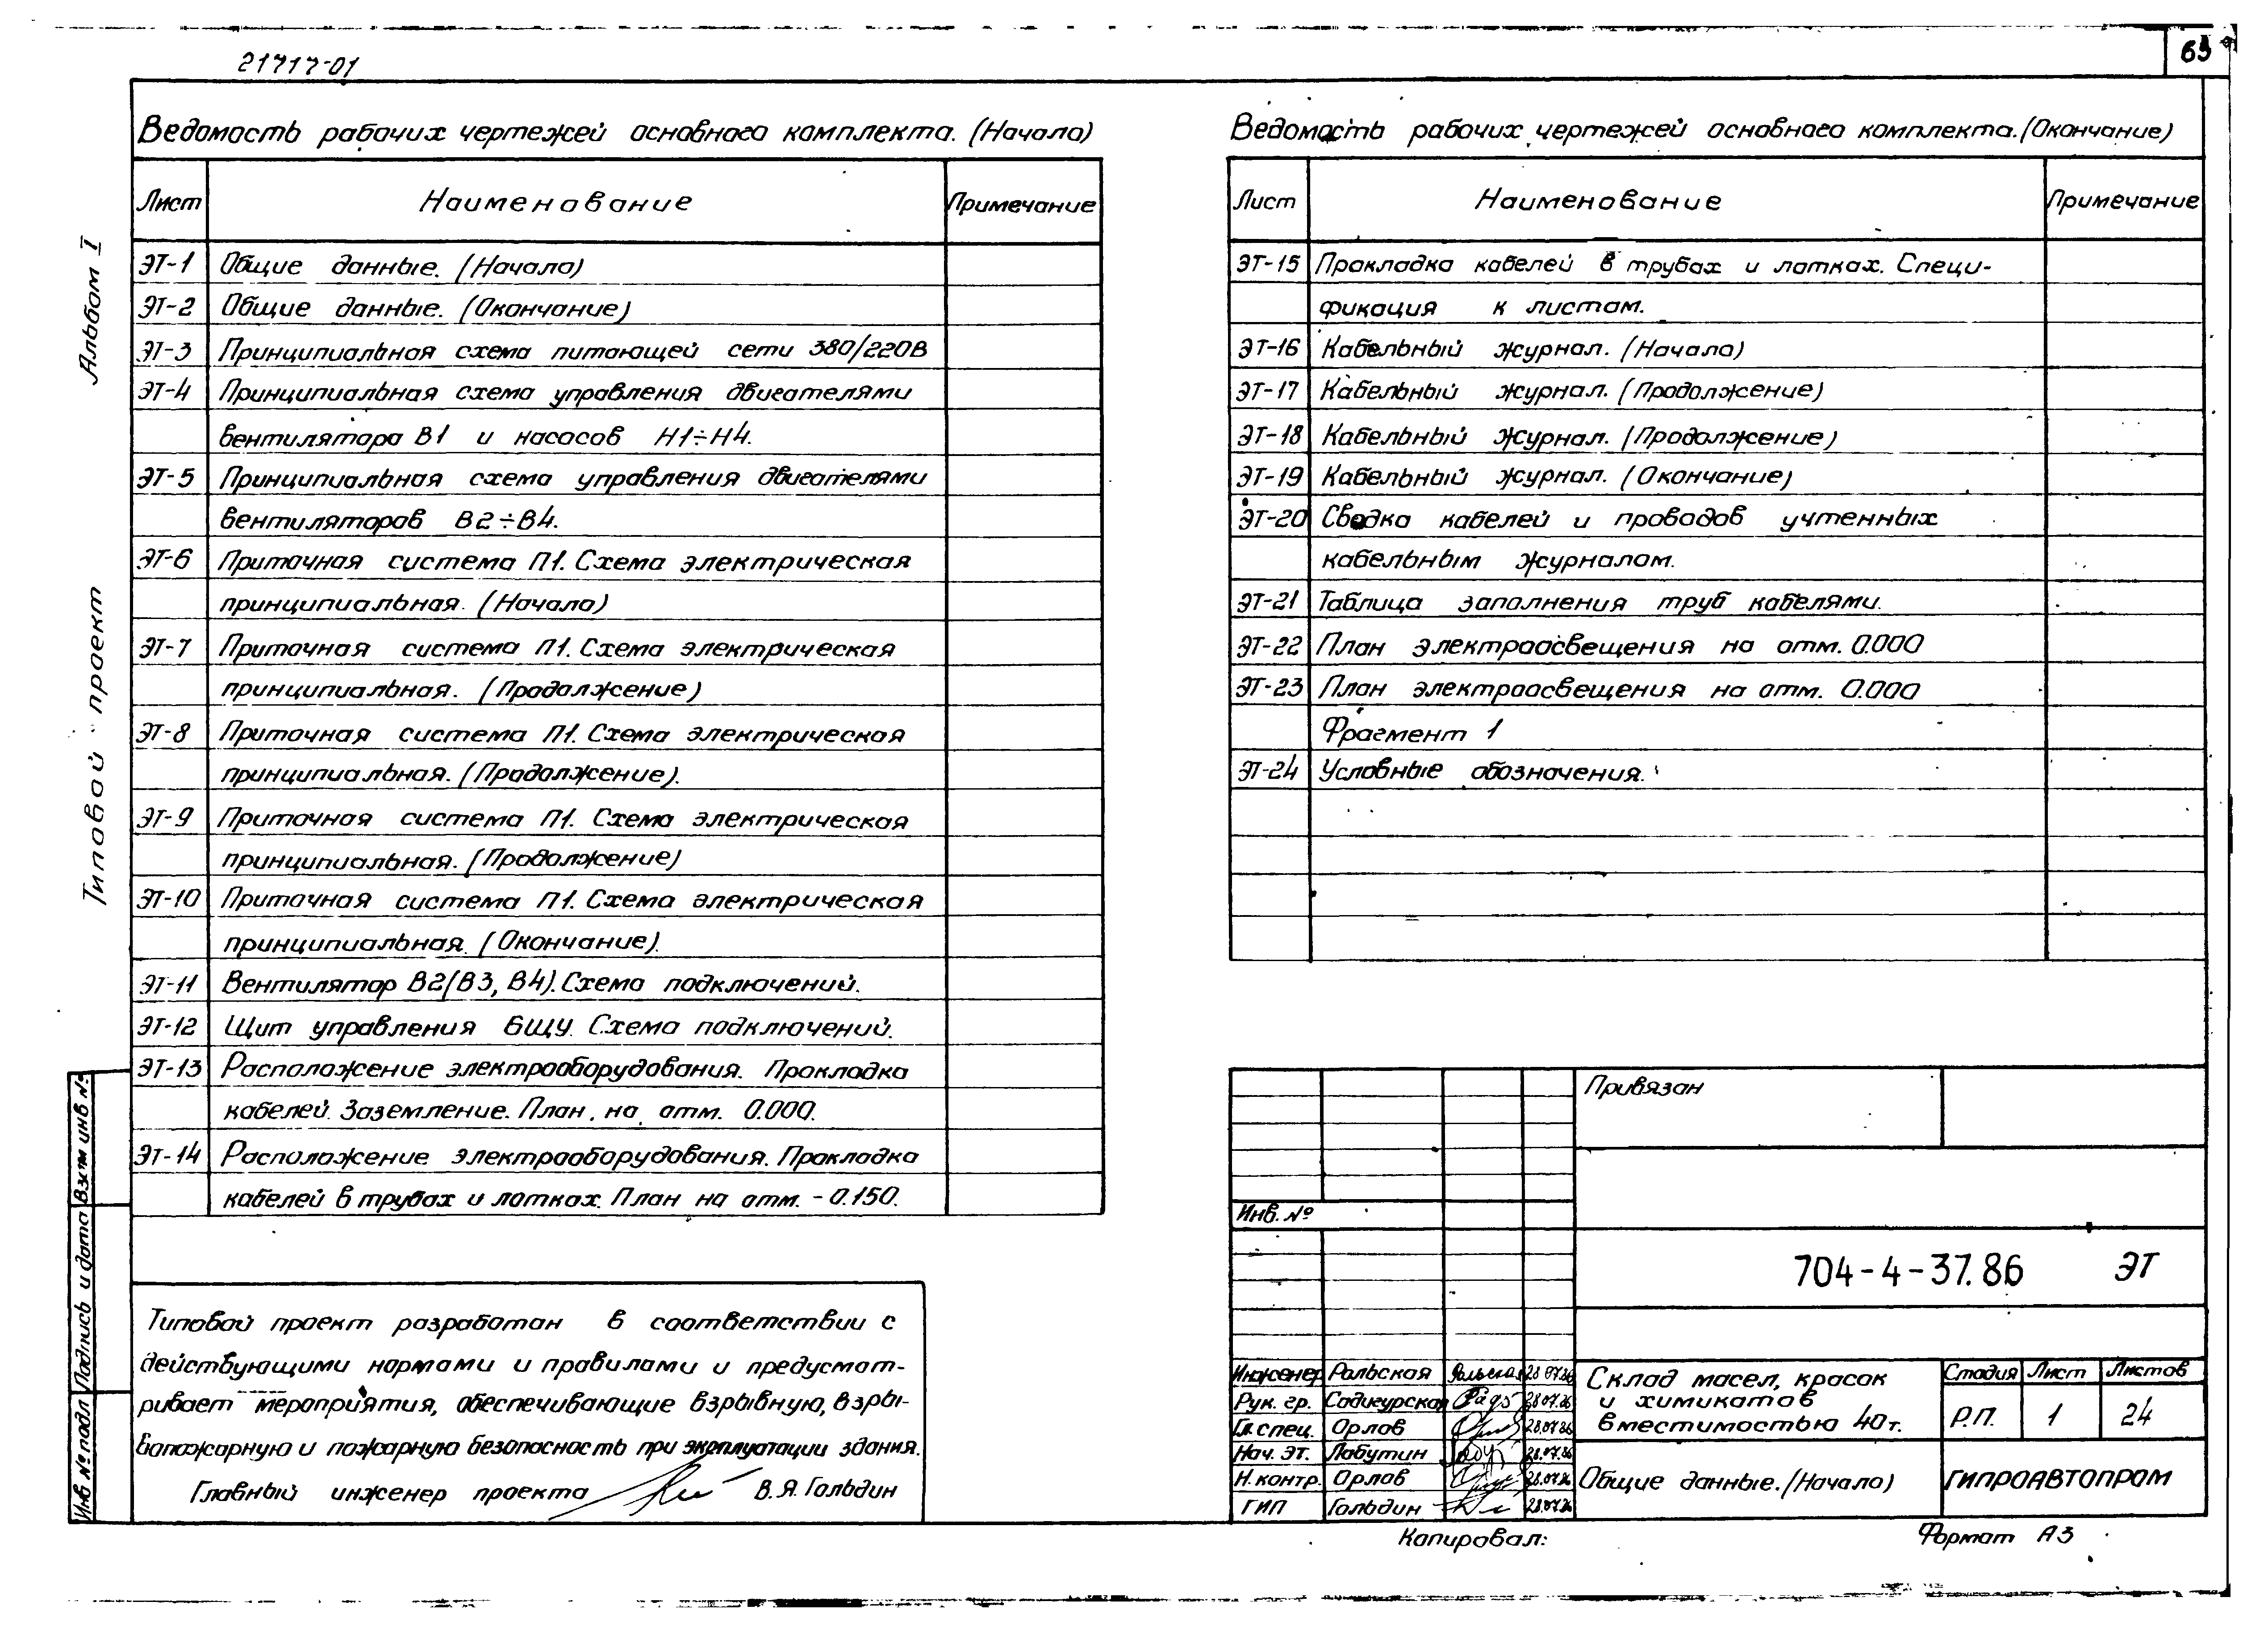 21717-01
63
Альбом I
Типовой проект
Ведомость рабочих чертежей основного комплекта. (Начало)
Лист Наименование Примечание
ЭТ-1 Общие данные. (Начало)
ЭТ-2 Общие данные. (Окончание)
ЭТ-3 Принципиальная схема питающей сети 380/220В
ЭТ-4 Принципиальная схема управления двигателями
вентилятора В1 и насосов Н1÷Н4.
ЭТ-5 Принципиальная схема управления двигателями
вентиляторов В2÷В4.
ЭТ-6 Приточная система П1. Схема электрическая
принципиальная. (Начало)
ЭТ-7 Приточная система П1. Схема электрическая
принципиальная. (Продолжение)
ЭТ-8 Приточная система П1. Схема электрическая
принципиальная. (Продолжение).
ЭТ-9 Приточная система П1. Схема электрическая
принципиальная. (Продолжение)
ЭТ-10 Приточная система П1. Схема электрическая
принципиальная. (Окончание).
ЭТ-11 Вентилятор В2(В3, В4). Схема подключений.
ЭТ-12 Щит управления БЩУ. Схема подключений.
ЭТ-13 Расположение электрооборудования. Прокладка
кабелей. Заземление. План на отм. 0.000.
ЭТ-14 Расположение электрооборудования. Прокладка
кабелей в трубах и лотках. План на отм. -0.150.
Ведомость рабочих чертежей основного комплекта. (Окончание)
Лист Наименование Примечание
ЭТ-15 Прокладка кабелей в трубах и лотках. Специ-
фикация к листам.
ЭТ-16 Кабельный журнал. (Начало)
ЭТ-17 Кабельный журнал. (Продолжение)
ЭТ-18 Кабельный журнал. (Продолжение)
ЭТ-19 Кабельный журнал. (Окончание)
ЭТ-20 Сводка кабелей и проводов учтенных
кабельным журналом.
ЭТ-21 Таблица заполнения труб кабелями.
ЭТ-22 План электроосвещения на отм. 0.000
ЭТ-23 План электроосвещения на отм. 0.000
Фрагмент 1
ЭТ-24 Условные обозначения.
Типовой проект разработан в соответствии с
действующими нормами и правилами и предусмат-
ривает мероприятия, обеспечивающие взрывную, взры-
вопожарную и пожарную безопасность при эксплуатации здания.
Главный инженер проекта В.Я. Гольдин
Взам инв №
Подпись и дата
Инв № подл
Привязан
Инв. №
704-4-37.86 ЭТ
Инженер Ральская Ральская 28.07.86
Рук. гр. Садигурская 28.07.86
Гл. спец. Орлов 28.07.86
Нач. ЭТ. Лабутин 28.07.86
Н. контр. Орлов 28.07.86
ГИП Гольдин 28.07.86
Склад масел, красок
и химикатов
вместимостью 40т.
Стадия Лист Листов
Р.П. 1 24
Общие данные. (Начало)
ГИПРОАВТОПРОМ
Копировал:
Формат А3